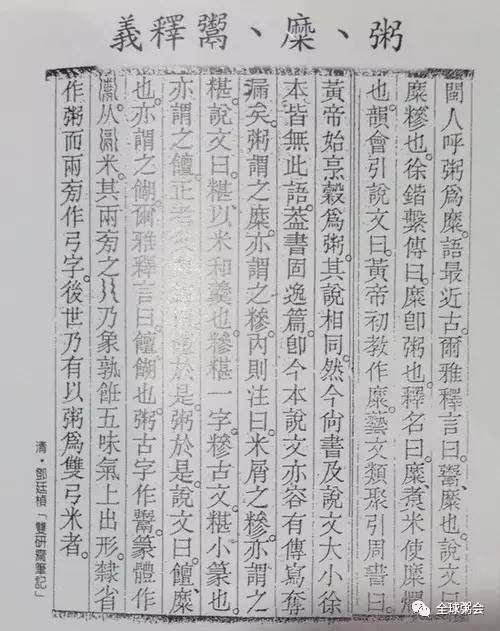 粥、糜、鬻釋義
閩人呼粥爲糜。語最近古。爾雅釋言曰。鬻、糜也。說文曰
糜糝也。徐鍇繫傳曰。糜卽粥也。釋名曰。糜、煮米使糜爛
也。韻會引說文曰。黃帝初教作糜。藝文類聚引周書曰。
黃帝始烹穀爲粥。其說相同。然今尙書及說文大小徐
本皆無此語。葢書固逸篇。卽今本說文亦容有傳寫奪
漏矣。粥謂之糜。亦謂之糝。內則注曰。米屑之糝。亦謂之
糂。說文曰。糂以米和羹也。糝糂一字。糝古文。糂小篆也。
亦謂之饘。正考於是。粥於是。說文曰。饘、糜
也。亦謂之餬。爾雅釋言曰。饘、餬也。粥古字作鬻。篆體作
从鬲米。其兩旁之乃象孰飪五味氣上出形。隸省
作粥而兩旁作弓字。後世乃有以粥爲雙弓米者。
清・鄧廷楨「雙硏齋筆記」
全球粥会